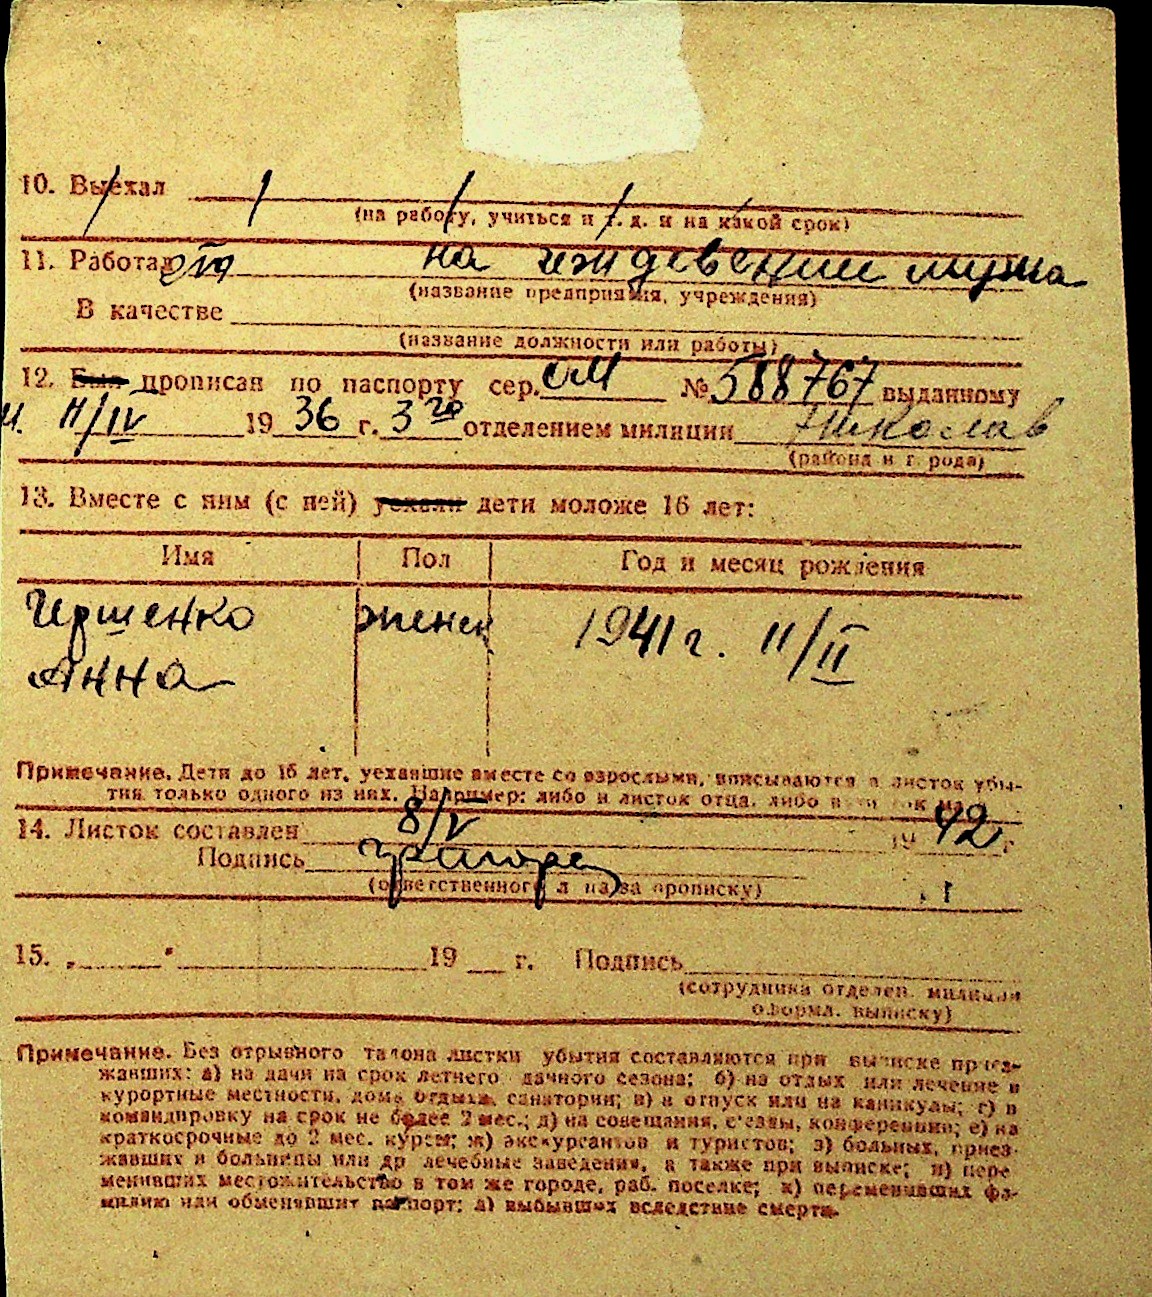 10. Выехал
(на работу, учиться и т. д. и на какой срок)
11. Работал на иждевении мужа
(название предприятия, учреждения)
В качестве
(название должности или работы)
12. Был прописан по паспорту сер. СМ № 588767 выданному
11/IV 1936 г. 3го отделением милиции Николаев
(района и города)
13. Вместе с ним (с ней) уехали дети моложе 16 лет:
Имя Пол Год и месяц рождения
Гершенко женск 1941 г. 11/II
Анна
Примечание. Дети до 16 лет, уехавшие вместе со взрослыми, вписываются в листок убы-
тия только одного из них. Например: либо в листок отца, либо в
14. Листок составлен 8/V 1942 г
Подпись
(ответственного лица за прописку)
15. „ “ 19 г. Подпись
(сотрудника отделен. милиции
оформл. выписку)
Примечание. Без отрывного талона листки убытия составляются при выписке приез-
жавших: а) на дачи на срок летнего дачного сезона; б) на отдых или лечение в
курортные местности, дома отдыха, санатории; в) в отпуск или на каникулы; г) в
командировку на срок не более 2 мес.; д) на совещания, съезды, конференции; е) на
краткосрочные до 2 мес. курсы; ж) экскурсантов и туристов; з) больных, приез-
жавших в больницы или др лечебные заведения, а также при выписке; и) пере
менивших местожительство в том же городе, раб. поселке; к) переменивших фа-
милию или обменявшит паспорт; л) выбывших вследствие смерти.